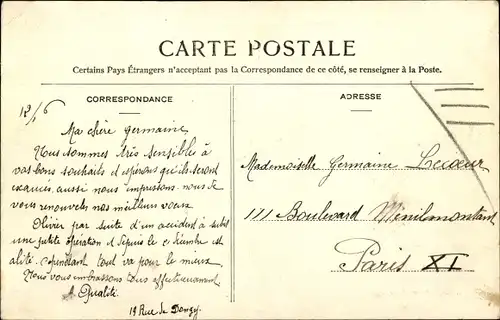 CARTE POSTALE
Certains Pays Étrangers n'acceptent pas la Correspondance de ce côté, se renseigner à la Poste.
CORRESPONDANCE
12/1 6
Ma chère germaine
Nous sommes très sensible à
vos bons souhaits et espérons qu'ils seront
exaucés, aussi nous empressons-nous de
vous renouveler nos meilleurs voeux.
Olivier par suite d'un accident a subit
une petite opération et depuis le Décembre est
alité. cependant tout va pour le mieux
Nous vous embrassons tous affectueusement
19 Rue de
ADRESSE
Mademoiselle Germaine Lecoeur
111 Boulevard Ménilmontant
Paris XI